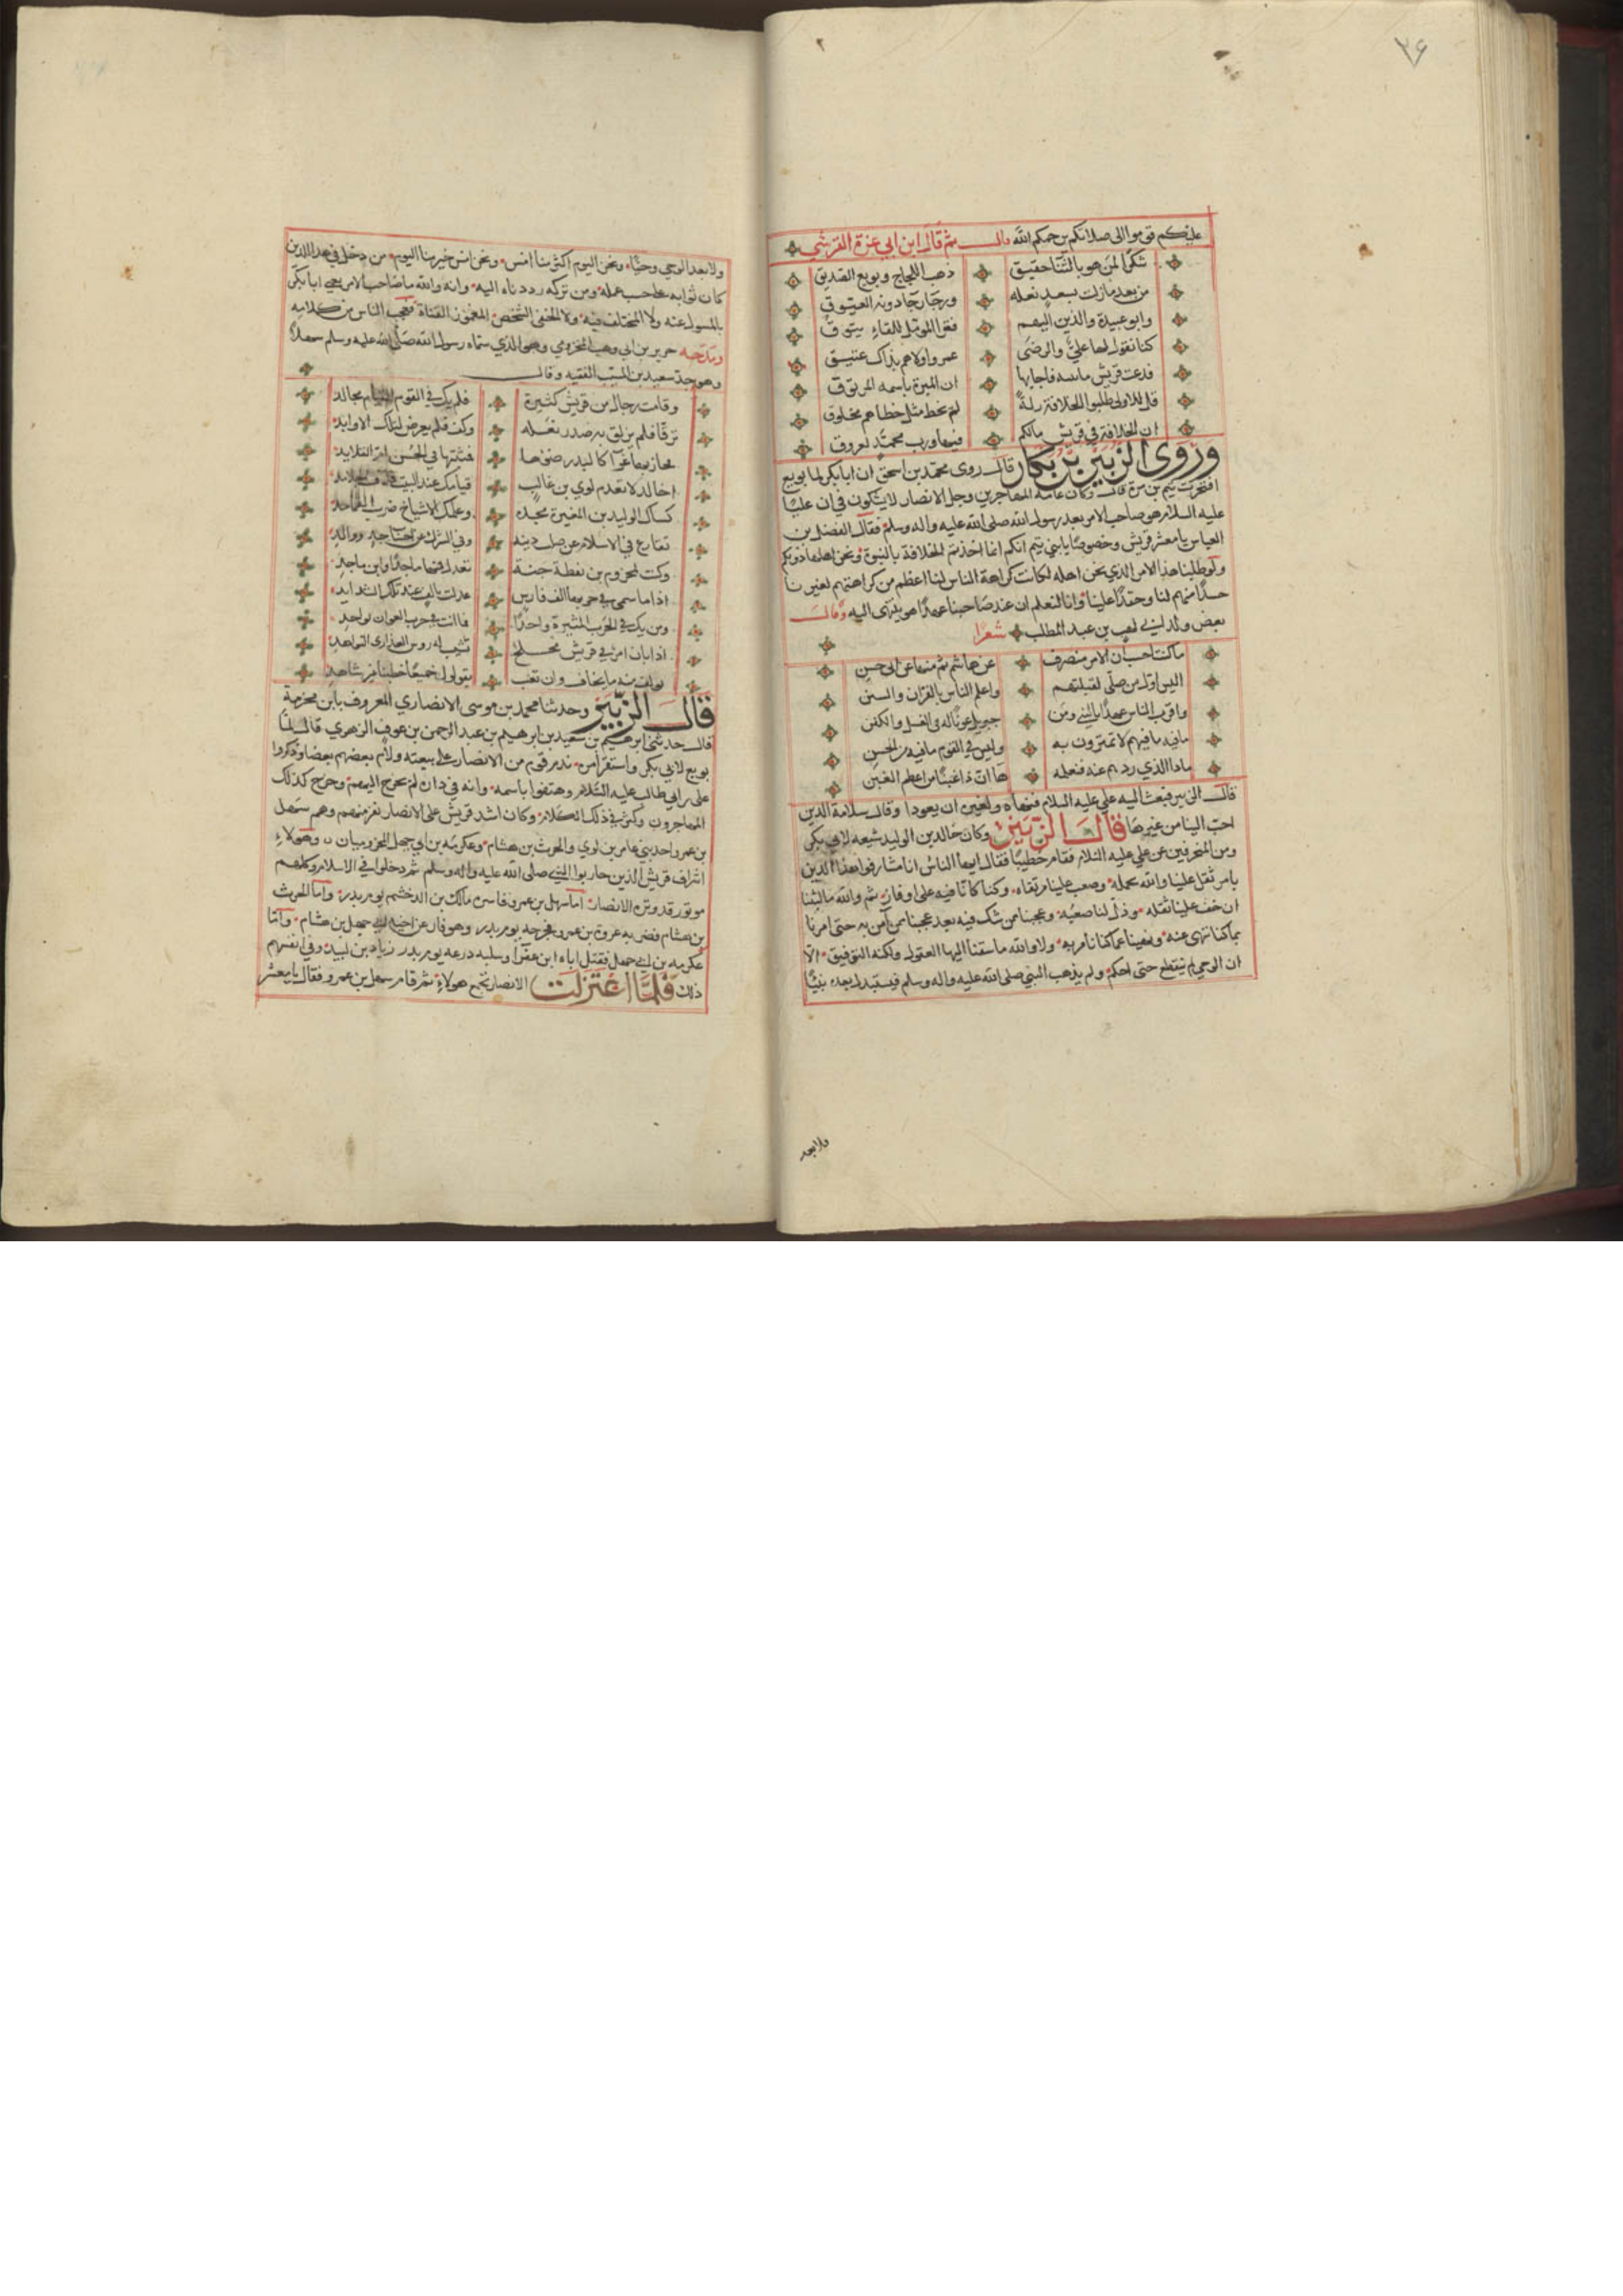 ٣٦
عليكم قوموا الى صلاتكم يرحمكم الله قال ثم قال ابن ابي عزة القرشي
شكرًا لمن هو بالثنا حقيق ذهب اللجاج وبويع الصديق
من بعد ما زلت بسعد نعله ورجا رجا دونه العيوق
وابو عبيدة والذين اليهم
كنا نقول لها علي والرضى عمر واولاهم بذاك عتيق
فدعت قريش فاجابها ان المنوة باسمه الموثوق
قل للاولى طلبوا الخلافة زلة لم يخط مثل خطاهم مخلوق
ان الخلافة في قريش مالكم فيها ورب محمد لعروق
وروى الزبير بن بكار قال روى محمد بن اسحق ان ابا بكر لما بويع
افتخرت تيم بن مرة قال وكان عامة المهاجرين وجل الانصار لا يشكون في ان عليًا
عليه السلام هو صاحب الامر بعد رسول الله صلى الله عليه واله وسلم فقال الفضل بن
العباس يا معشر قريش وخصوصًا يا بني تيم انكم انما اخذتم الخلافة بالنبوة ونحن اهلها دونكم
ولو طلبنا هذا الامر الذي نحن اهله لكانت كراهة الناس لنا اعظم من كراهتهم لغيرنا
حسدًا منهم لنا وحقدًا علينا وانا لنعلم ان عند صاحبنا عهدًا هو ينتهى اليه وقال
بعض ولد ابي لهب بن عبد المطلب شعرًا
ما كنت احسب ان الامر منصرف عن هاشم ثم منها عن ابي حسن
اليس اول من صلى لقبلتهم واعلم الناس بالقرآن والسنن
واقرب الناس عهدًا بالنبي ومن جبريل عون له في الغسل والكفن
ما فيه ما فيهم لا تمترون به وليس في القوم ما فيه من الحسن
ماذا الذي ردهم عنه فنعلمه ها ان ذا غبنًا من اعظم الغبن
قال الزبير فبعث اليه علي عليه السلام فنهاه ان يعود وقال سلامة الدين
احب الينا من غيرها قال الزبير وكان خالد بن الوليد شيعه لابي بكر
ومن المنحرفين عن علي عليه السلام فقام خطيبًا فقال ايها الناس انا هذا الدين
بامر ثقل علينا والله محمله وصعب علينا مرتقاه وكنا كانا فيه على اوفاز ثم والله ما لبثنا
ان خف علينا ثقله وذل لنا صعبه وعجبنا من شك فيه بعد عجبنا ممن آمن به حتى امرنا
بما كنا ننهى عنه ونهينا عما كنا نامر به ولا والله ما سبقنا اليها العقول ولكنه التوفيق الا
ان الوحي لم ينقطع حتى احكم ولم يذهب النبي صلى الله عليه واله وسلم فيستبدل بعده نبيًا
ولا بعد
ولا بعد الوحي وحيًا ونحن اليوم اكثر منا امس ونحن امس خير منا اليوم من دخل في هذا الدين
كان ثوابه على حسب عمله ومن تركه رددناه اليه وانه والله ما صاحب الامر يعني ابا بكر
بالمسول عنه ولا المختلف فيه ولا الخفي الشخص المغموز القناة فعجب الناس من كلامه
ومدحه حزن بن ابي وهب المخزومي وهو الذي سماه رسول الله صلى الله عليه وسلم سهلًا
وهو جد سعيد بن المسيب الفقيه وقال
وقامت رجال من قريش كثيرة فلم يك في القوم القيام كخالد
ترقا فلم يزلق به صدر نعله وكف فلم يعرض لتلك الاوابد
فجاء بها غرا كالبدر ضوءها
اخالد لا تعدم لوي بن غالب قيامك عند البيت
كساك الوليد بن المغيرة مجده وعلمك الاشياخ ضرب
تقارع في الاسلام عن صلب دينه وفي الشرك عن احساب جد ووالد
وكنت لمخزوم بن يقظة جنة ماجدًا وابن ماجد
اذا ما سمى في حربها الف فارس عدلت بالف عند تلك الشدايد
ومن يك في الحرب المثيرة واحدًا فما انت في حرب العوان بواحد
اذا ناب امر في قريش مخلج تشيب له روس العذارى النواهد
توليت منه ما يخاف وان تغب يقولوا جميعًا خطبنا غير شاهد
قال الزبير وحدثنا محمد بن موسى الانصاري المعروف بابن مخرمة
قال حدثني ابرهيم بن سعيد بن ابرهيم بن عبد الرحمن بن عوف الزهري قال لما
بويع لابي بكر واستقر امره ندم قوم من الانصار على بيعته ولام بعضهم بعضا وذكروا
علي بن ابي طالب عليه السلام وهتفوا باسمه وانه في داره لم يخرج اليهم وجزع كذلك
المهاجرون وكثر في ذلك الكلام وكان اشد قريش على الانصار نفر منهم وهم سهل
بن عمرو احد بني عامر بن لوي والحرث بن هشام وعكرمة بن ابي جهل المخزوميان وهولاء
اشراف قريش الذين حاربوا النبي صلى الله عليه واله وسلم ثم دخلوا في الاسلام وكلهم
موتور قد وتره الانصار اما سهل بن عمرو فاسره مالك بن الدخشم يوم بدر واما الحرث
بن هشام فضربه عروة بن عمرو فجرحه يوم بدر وهو فار عن اخيه ابي جهل بن هشام واما
عكرمه بن ابي جهل فقتل اباه ابن عفرا وسلبه درعه يوم بدر زياد بن لبيد وفي انفسهم
ذلك فلما اعتزلت الانصار تجمع هولاء ثم قام سهل بن عمرو فقال يا معشر